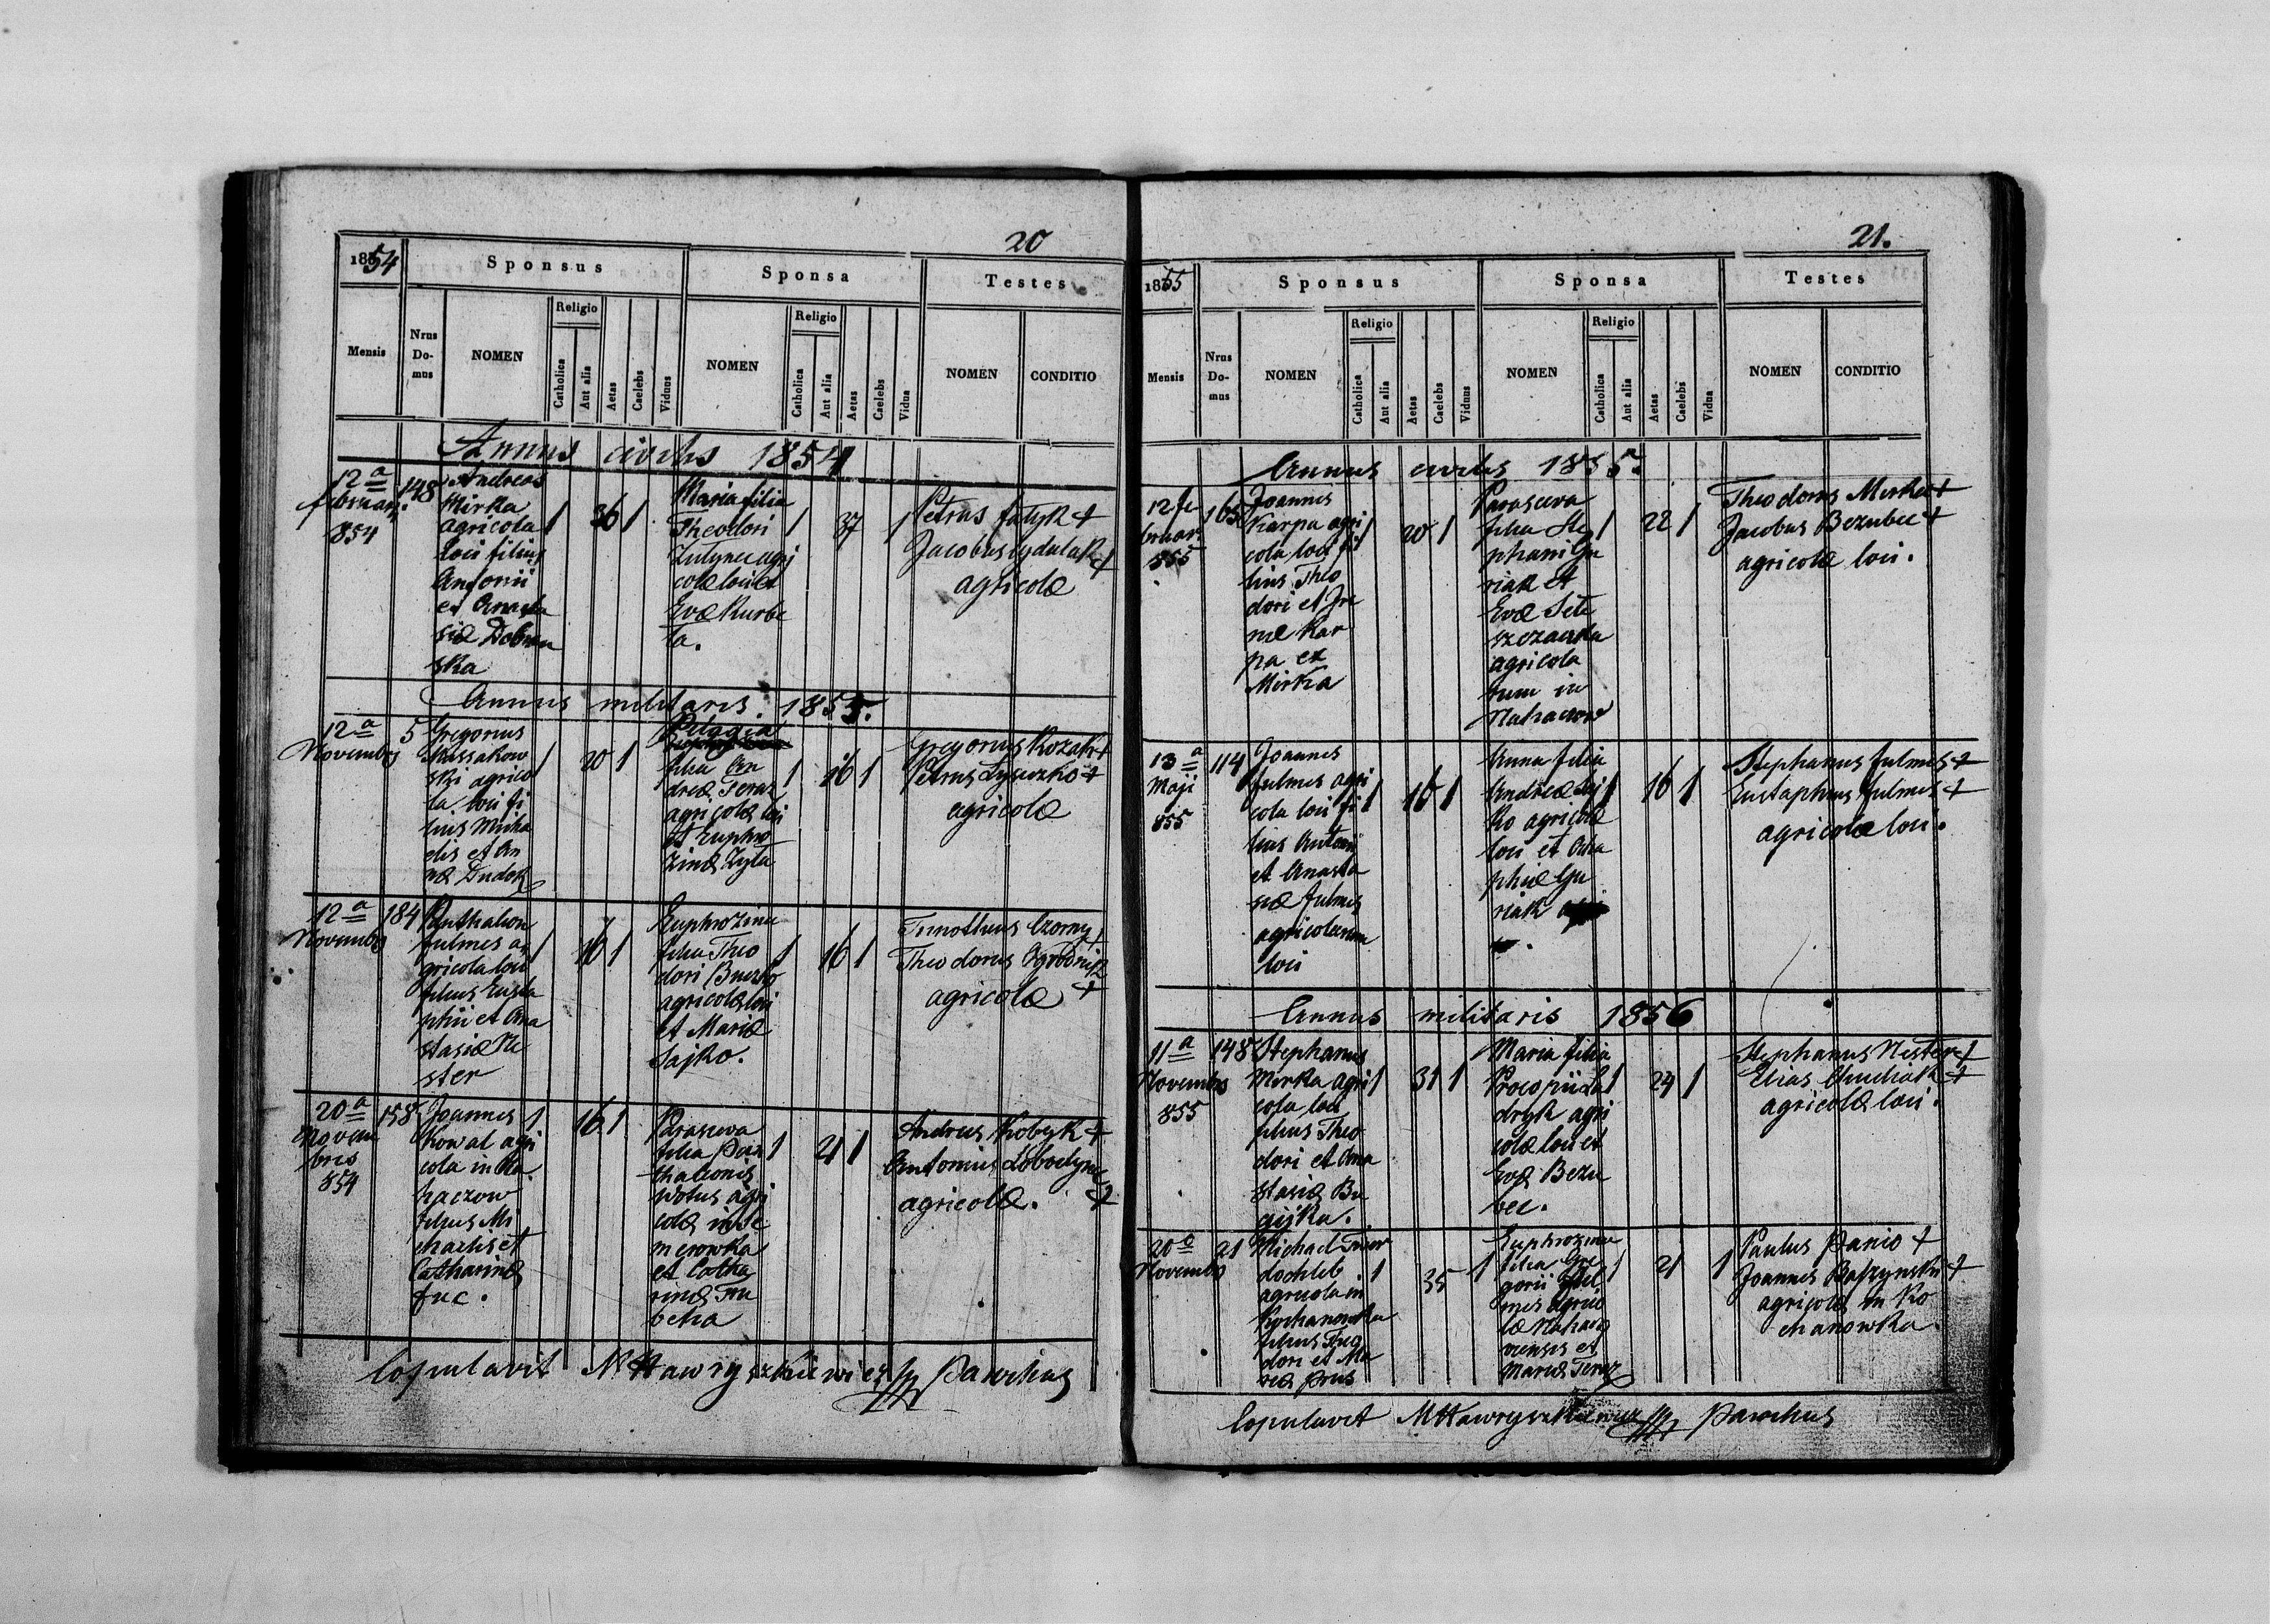 20
1854
Sponsus
Sponsa
Testes
Mensis
Nrus Domus
NOMEN
Religio
Catholica
Aut alia
Aetas
Caelebs
Viduus
NOMEN
Religio
Catholica
Aut alia
Aetas
Caelebs
Vidua
NOMEN
CONDITIO
Annus civilis 1854
12a
februar.
854
148
Andreas
Mirka
agricola
loci filius
Antonii
et Anasta
siæ
ska
1 36 1
Maria filia
Theodori
agri
colæ loci et
Evæ Kurbe
ta.
1 37 1
Petrus fatyk +
Jacobus +
agricolæ
Annus militaris 1855.
12a
Novembris
5
Gregorius
Kassakow
ski agrico
la loci fi
lius Micha
elis et An
næ Dudok
1 20 1
Pelagia
filia An
dreæ Teraz
agricolæ loci
et Euphro
zinæ Zyta
1 16 1
Gregorius Kozak +
Petrus Lyseczko +
agricolæ
12a
Novembris
184
Panthaleon
fulmes a
gricola loci
filius Eusta
phii et Ana
stasiæ Ne
ster
1 16 1
Euphrozina
filia Theo
dori
agricolæ loci
et Mariæ
Sajko.
1 16 1
Timotheus Czorny +
Theodorus
agricolæ +
20a
Novem
bris
854
158
Joannes
Kowal agri
cola in Na
haczow
filius Mi
chaelis et
Catharinæ
fuc.
1 16 1
Parasceva
filia Pan
thaleonis
Wolus agri
colæ in Se
merowka
et Catha
rinæ Tru
becka
1 21 1
Andreas Kobyk +
Antonius Lobodynec
agricolæ. +
Copulavit MHawryszkiewicz Parochus
21.
1855
Sponsus
Sponsa
Testes
Mensis
Nrus Domus
NOMEN
Religio
Catholica
Aut alia
Aetas
Caelebs
Viduus
NOMEN
Religio
Catholica
Aut alia
Aetas
Caelebs
Vidua
NOMEN
CONDITIO
Annus civilis 1855.
12 Fe
bruar.
855
165
Joannes
Karpa agri
cola loci fi
lius Theo
dori et Ire
næ Kar
pa ex
Mirka
1 20 1
Parasceva
filia Ste
phani Gu
riak et
Evæ Sete
agricola
rum in
Nahaczow
1 22 1
Theodorus Mirka +
Jacobus Bezubec +
agricolæ loci.
13a
Maji
855
114
Joannes
fulmes agri
cola loci fi
lius Antonii
et Anasta
siæ fulmes
agricolarum
loci
1 16 1
Anna filia
Andreæ
ko agricolæ
loci et Aga
phiæ Gu
riak
1 16 1
Stephanus fulmes +
Eustaphius fulmes +
agricolæ loci.
Annus militaris 1856
11a
Novembris
855
148
Stephanus
Mirka agri
cola loci
filius Theo
dori et Ana
stasiæ Bu
cijka.
1 31 1
Maria filia
Procopii
dryk agri
colæ loci et
Evæ Bezu
bec.
1 24 1
Stephanus Nester +
Elias Chudiak +
agricolæ loci.
20a
Novembris
21
Michael Twer
dochleb
agricola in
Kochanowka
filius Theo
dori et Ma
riæ Prus
1 35 1
Euphrozina
filia Gre
gorii Ful
mes agrico
læ Nahaczo
viensis et
Mariæ Teraz
1 21 1
Paulus Panio +
Joannes Baszynski +
agricolæ in Ko
chanowka.
Copulavit MHawryszkiewicz Parochus